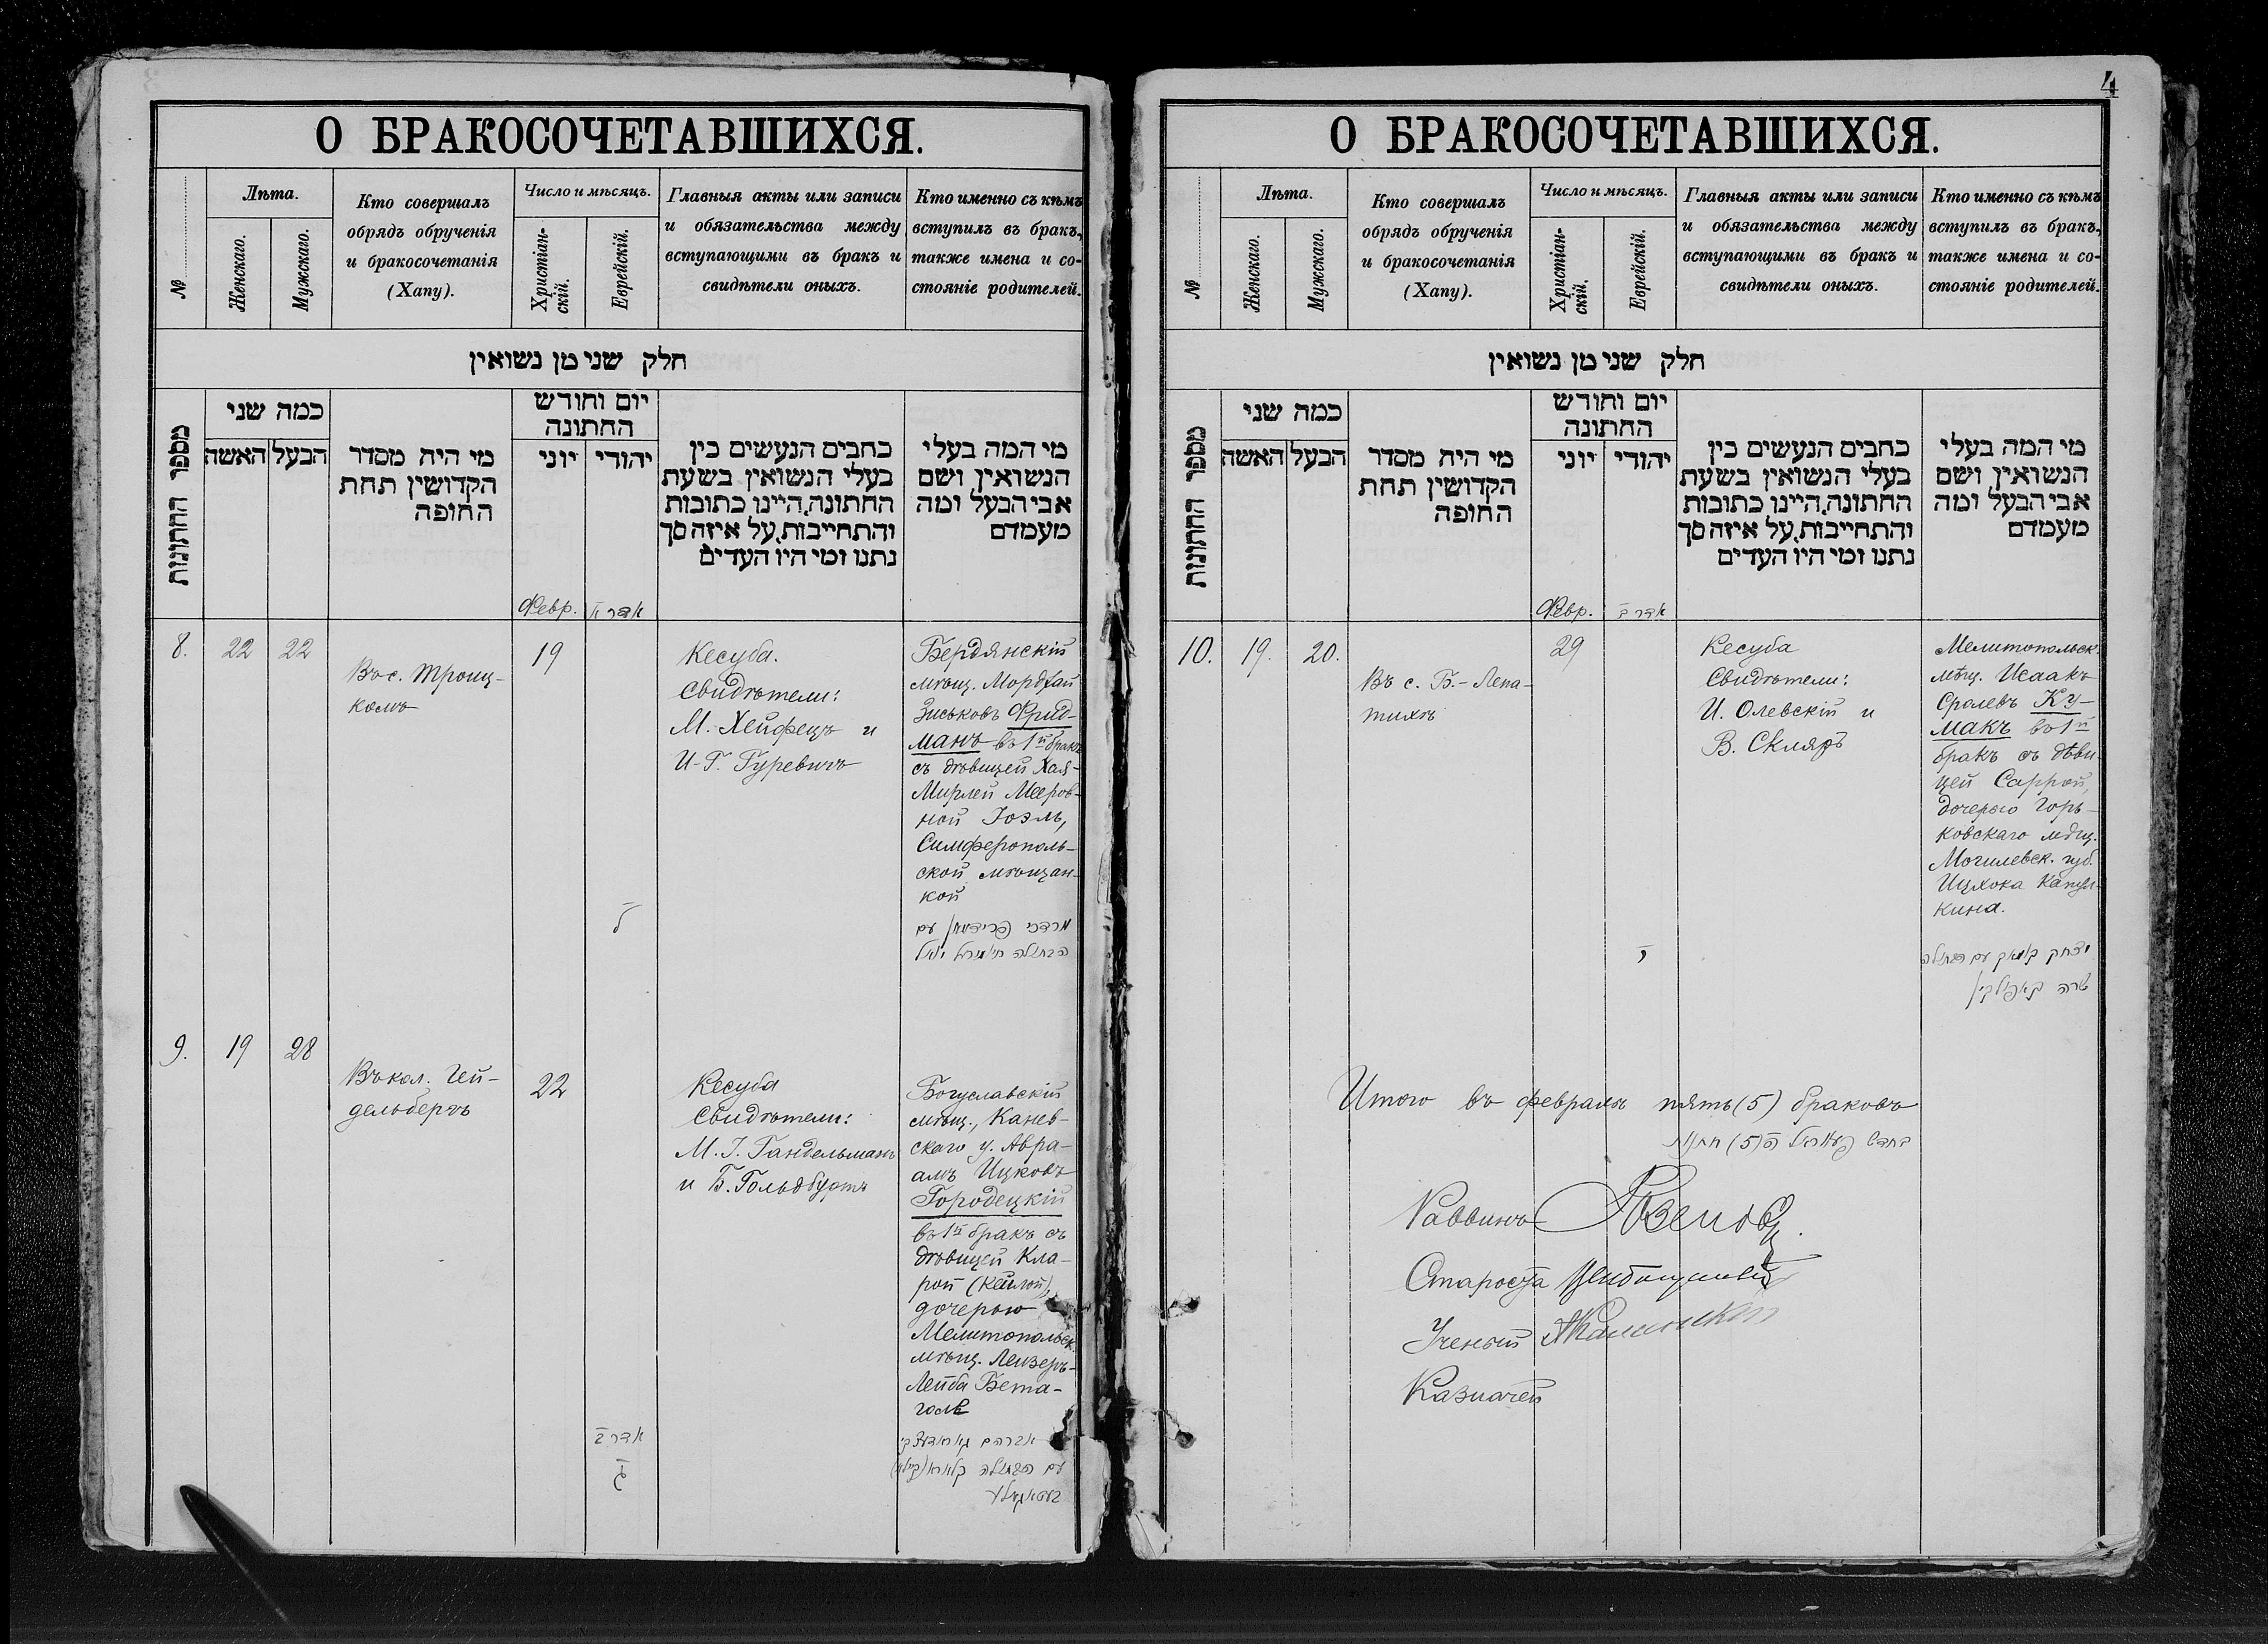 О БРАКОСОЧЕТАВШИХСЯ.
№
Лѣта.
Женскаго.
Мужскаго.
Кто совершалъ
обрядъ обрученія
и бракосочетанія
(Хапу).
Число и мѣсяцъ.
Христіан-
скій.
Еврейскій.
Главныя акты или записи
и обязательства между
вступающими въ бракъ и
свидѣтели оныхъ.
Кто именно съ кѣмъ
вступилъ въ бракъ,
также имена и со-
стояніе родителей.
חלק שני מן נשואין
מספר החתונות
כמה שני
האשה
הבעל
מי היה מסדר
הקדושין תחת
החופה
יום וחודש
החתונה
יוני
יהודי
כתבים הנעשים בין
בעלי הנשואין בשעת
החתונה, היינו כתובות
והתחייבות, על איזה סך
נתנו ומי היו העדים
מי המה בעלי
הנשואין ושם
אבי הבעל ומה
מעמדם
Февр.
אדר א
8.
22
22
Въ с. Троиц-
комъ
19
ל
Кесуба.
Свидѣтели:
М. Хейфецъ и
И-Г. Гуревичъ
Бердянскій
мѣщ. Мордхай
Зиськовъ Фрид-
манъ въ 1й бракъ
съ дѣвицей Хая-
Мирлей Мееров-
ной Іоэль,
Симферополь-
ской мѣщан-
кой
מרדכי פרידמאן עם
הבתולה חי׳ מירל יואל
9.
19
28
Въ кол. Гей-
дельбергъ
22
אדר ב
ג
Кесуба
Свидѣтели:
М. І. Гандельманъ
и Б. Гольдбуртъ
Богуславскій
мѣщ., Канев-
скаго у. Авра-
амъ Ицковъ
Городецкій
въ 1й бракъ съ
дѣвицей Кла-
рой (Кейлой),
дочерью
Мелитопольск.
мѣщ. Лейзеръ-
Лейба Бета-
голь
אברהם גאראדעצקי
עם הבתולה קלארא (קיילא)
4
О БРАКОСОЧЕТАВШИХСЯ.
№
Лѣта.
Женскаго.
Мужскаго.
Кто совершалъ
обрядъ обрученія
и бракосочетанія
(Хапу).
Число и мѣсяцъ.
Христіан-
скій.
Еврейскій.
Главныя акты или записи
и обязательства между
вступающими въ бракъ и
свидѣтели оныхъ.
Кто именно съ кѣмъ
вступилъ въ бракъ,
также имена и со-
стояніе родителей.
חלק שני מן נשואין
מספר החתונות
כמה שני
האשה
הבעל
מי היה מסדר
הקדושין תחת
החופה
יום וחודש
החתונה
יוני
יהודי
כתבים הנעשים בין
בעלי הנשואין בשעת
החתונה, היינו כתובות
והתחייבות, על איזה סך
נתנו ומי היו העדים
מי המה בעלי
הנשואין ושם
אבי הבעל ומה
מעמדם
Февр.
אדר ב
10.
19.
20.
Въ с. Б.-Лепа-
тихѣ
29
י
Кесуба
Свидѣтели:
И. Олевскій и
В. Скляръ
Мелитопольск.
мѣщ. Исаакъ
Сролевъ Ку-
макъ въ 1й
бракъ съ дѣви-
цей Саррой,
дочерью Горь-
ковскаго мѣщ.
Могилевск. губ.
Ицхока Капул-
кина.
יצחק קומאק עם הבתולה
שרה קאפולקין
Итого въ февралѣ пять (5) браковъ
בחדש פעווראל ה (5) חתנות
Раввинъ
Староста
Ученый
Казначей